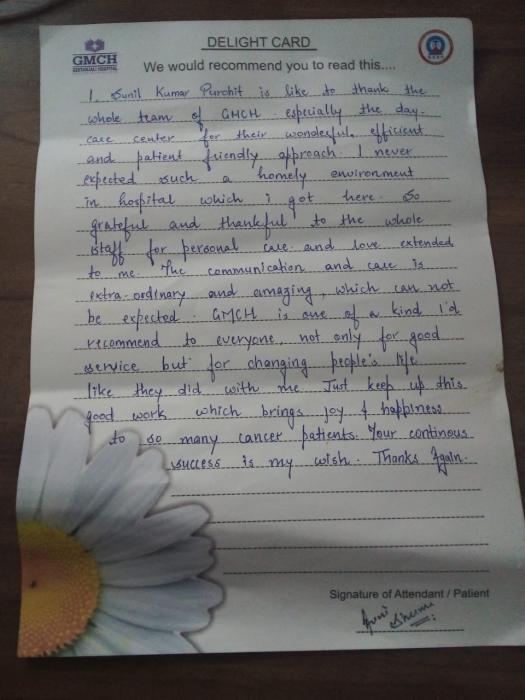 DELIGHT CARD
GMCH
GEETANJALI HOSPITAL
We would recommend you to read this....
I, Sunil Kumar Purohit is like to thank the
whole team of GMCH especially the day-
care center for their wonderful, efficient
and patient friendly approach. I never
expected such a homely environment
in hospital which i got here. So
grateful and thankful to the whole
staff for personal care and love extended
to me. The communication and care is
extra-ordinary and amazing, which can not
be expected. GMCH is one of a kind I'd
recommend to everyone, not only for good
service but for changing people's life
like they did with me Just keep up this
good work which brings joy & happiness
to so many cancer patients. Your continous
success is my wish. Thanks Again.
Signature of Attendant / Patient